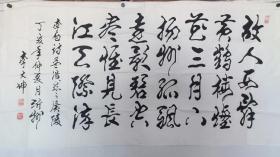 故人西辞
黄鹤楼烟
花三月下
扬州孤帆
远影碧空
尽唯见长
江天际流
李白诗孟浩然之广陵
丁亥年仲夏月